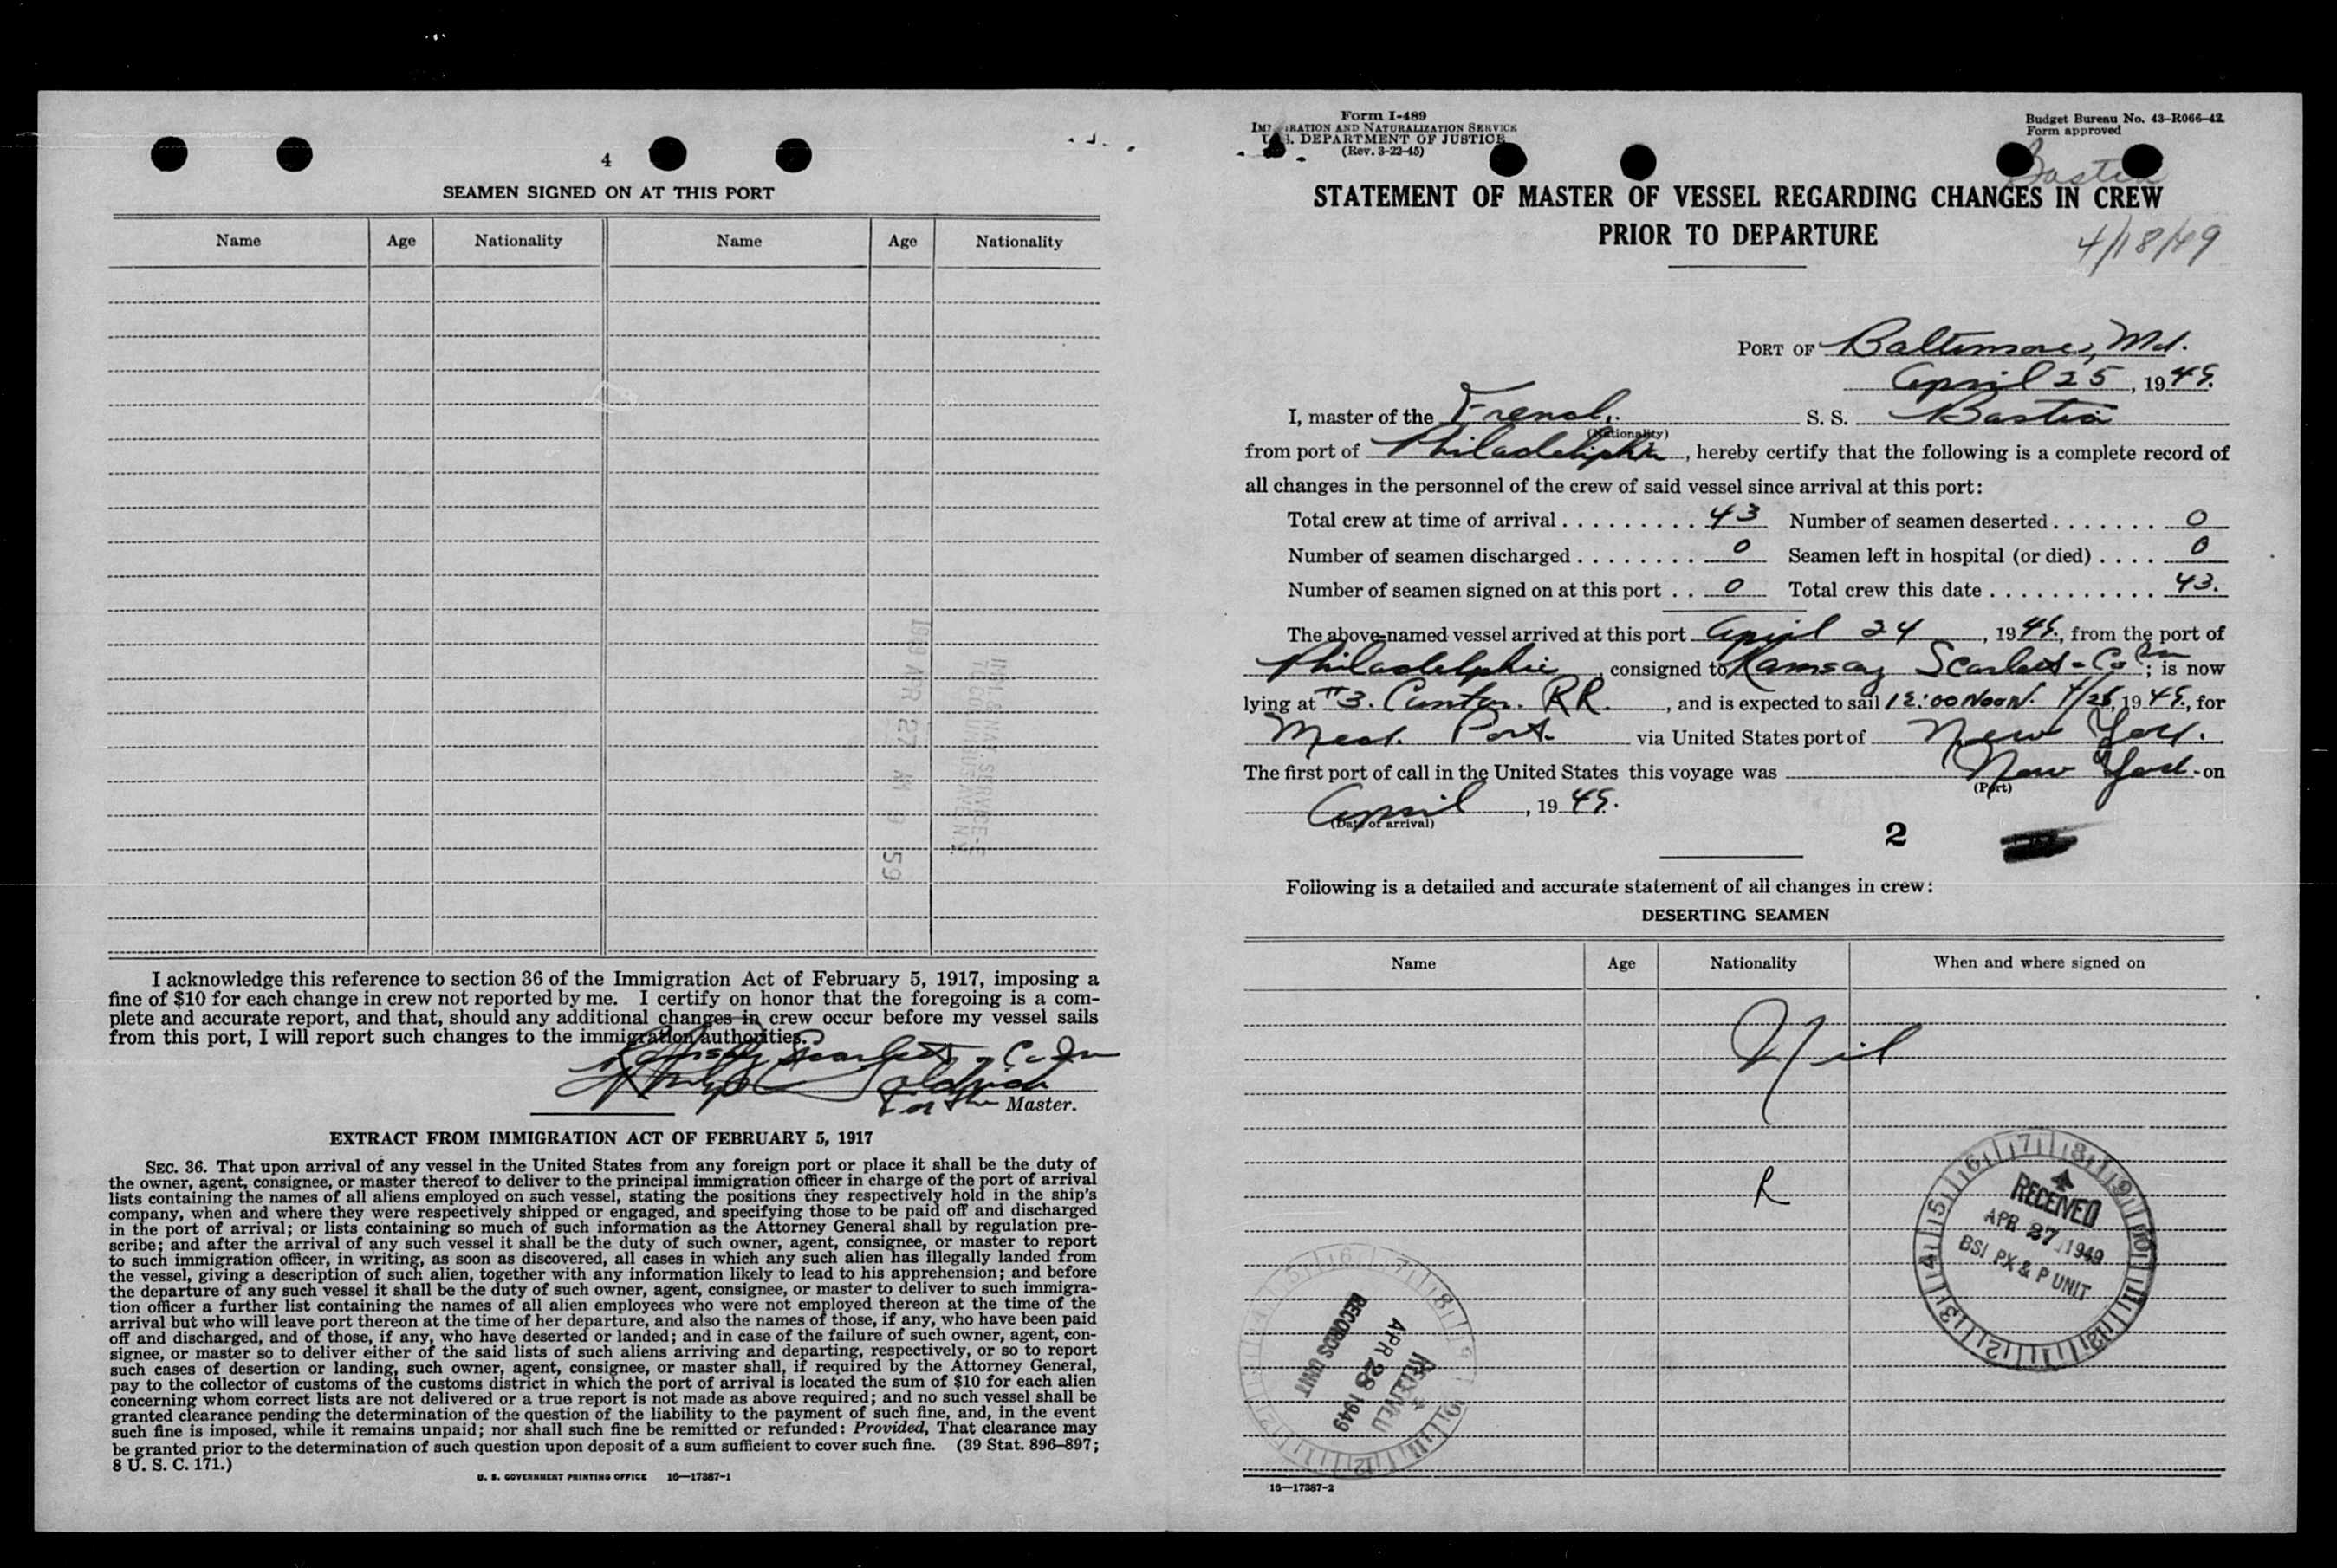 4
SEAMEN SIGNED ON AT THIS PORT
Name Age Nationality Name Age Nationality
1949 APR 27 AM 9 59
I acknowledge this reference to section 36 of the Immigration Act of February 5, 1917, imposing a
fine of $10 for each change in crew not reported by me. I certify on honor that the foregoing is a com-
plete and accurate report, and that, should any additional changes in crew occur before my vessel sails
from this port, I will report such changes to the immigration authorities.
Ramsay Scarlett & Co Inc
For the Master.
EXTRACT FROM IMMIGRATION ACT OF FEBRUARY 5, 1917
SEC. 36. That upon arrival of any vessel in the United States from any foreign port or place it shall be the duty of
the owner, agent, consignee, or master thereof to deliver to the principal immigration officer in charge of the port of arrival
lists containing the names of all aliens employed on such vessel, stating the positions they respectively hold in the ship's
company, when and where they were respectively shipped or engaged, and specifying those to be paid off and discharged
in the port of arrival; or lists containing so much of such information as the Attorney General shall by regulation pre-
scribe; and after the arrival of any such vessel it shall be the duty of such owner, agent, consignee, or master to report
to such immigration officer, in writing, as soon as discovered, all cases in which any such alien has illegally landed from
the vessel, giving a description of such alien, together with any information likely to lead to his apprehension; and before
the departure of any such vessel it shall be the duty of such owner, agent, consignee, or master to deliver to such immigra-
tion officer a further list containing the names of all alien employees who were not employed thereon at the time of the
arrival but who will leave port thereon at the time of her departure, and also the names of those, if any, who have been paid
off and discharged, and of those, if any, who have deserted or landed; and in case of the failure of such owner, agent, con-
signee, or master so to deliver either of the said lists of such aliens arriving and departing, respectively, or so to report
such cases of desertion or landing, such owner, agent, consignee, or master shall, if required by the Attorney General,
pay to the collector of customs of the customs district in which the port of arrival is located the sum of $10 for each alien
concerning whom correct lists are not delivered or a true report is not made as above required; and no such vessel shall be
granted clearance pending the determination of the question of the liability to the payment of such fine, and, in the event
such fine is imposed, while it remains unpaid; nor shall such fine be remitted or refunded: Provided, That clearance may
be granted prior to the determination of such question upon deposit of a sum sufficient to cover such fine. (39 Stat. 896–897;
8 U. S. C. 171.)
U. S. GOVERNMENT PRINTING OFFICE 16—17387-1
Form I-489
IMMIGRATION AND NATURALIZATION SERVICE
U. S. DEPARTMENT OF JUSTICE
(Rev. 3-22-45)
Budget Bureau No. 43-R066-42
Form approved
Bastia
STATEMENT OF MASTER OF VESSEL REGARDING CHANGES IN CREW
PRIOR TO DEPARTURE
4/18/49
PORT OF Baltimore, Md.
April 25, 1949.
I, master of the French S. S. Bastia
(Nationality)
from port of Philadelphia, hereby certify that the following is a complete record of
all changes in the personnel of the crew of said vessel since arrival at this port:
Total crew at time of arrival 43 Number of seamen deserted 0
Number of seamen discharged 0 Seamen left in hospital (or died) 0
Number of seamen signed on at this port 0 Total crew this date 43.
The above-named vessel arrived at this port April 24, 1949, from the port of
Philadelphia, consigned to Ramsay Scarlett & Co Inc; is now
lying at #3. Canton. RR., and is expected to sail 12:00 Noon. 4/26, 1949, for
Med. Port. via United States port of New York.
The first port of call in the United States this voyage was New York on
(Port)
April, 1949.
(Date of arrival)
2
Following is a detailed and accurate statement of all changes in crew:
DESERTING SEAMEN
Name Age Nationality When and where signed on
Nil
R
RECEIVED
APR 27 1949
BSI PX & P UNIT
RECEIVED
APR 28 1949
RECORDS UNIT
16—17387-2